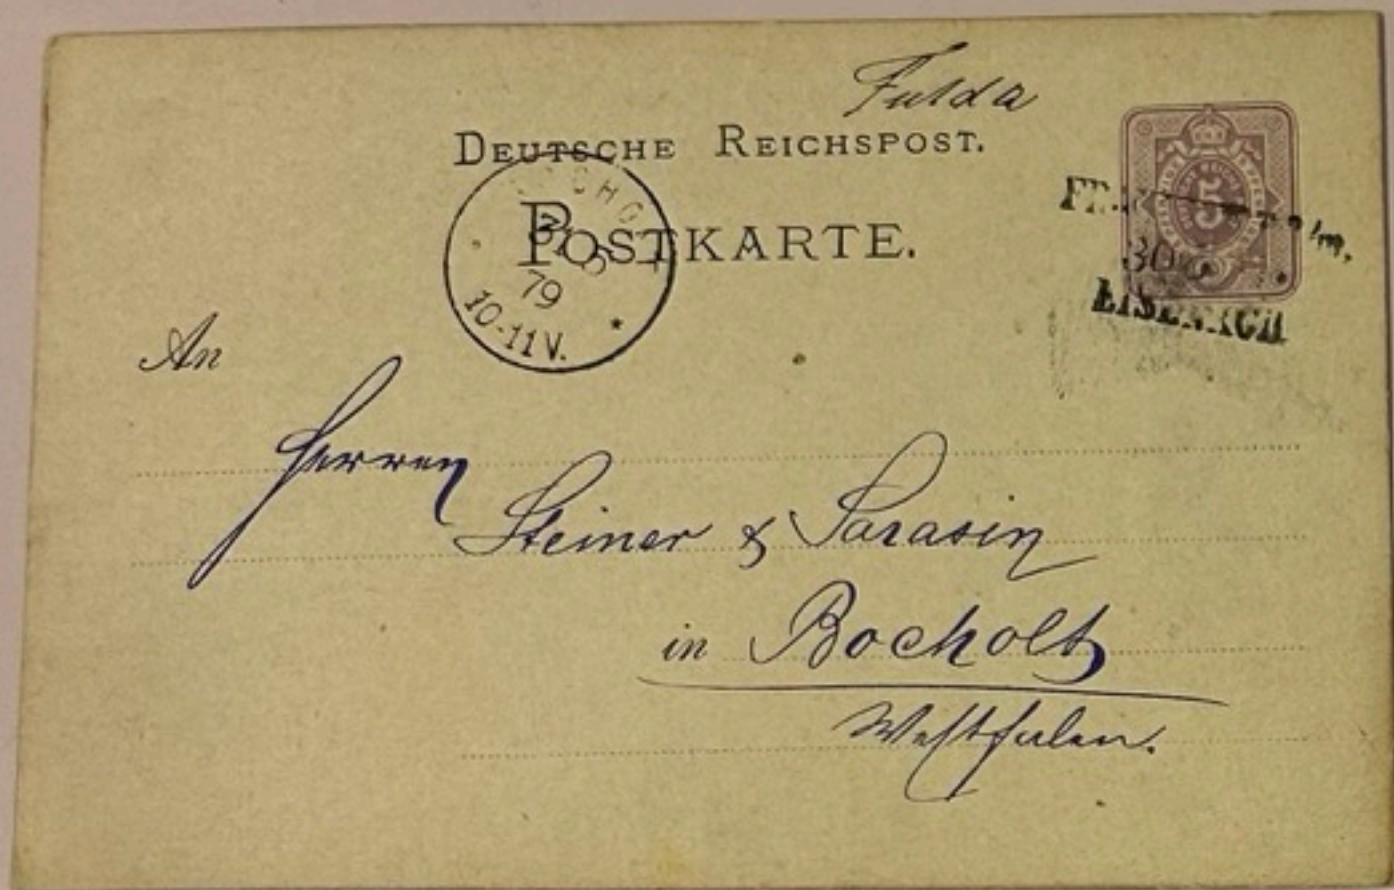 Fulda
DEUTSCHE REICHSPOST.
POSTKARTE.
79
10-11 V.
5
30
An
Herren
Steiner & Sarasin
in Bocholt
Westfalen.